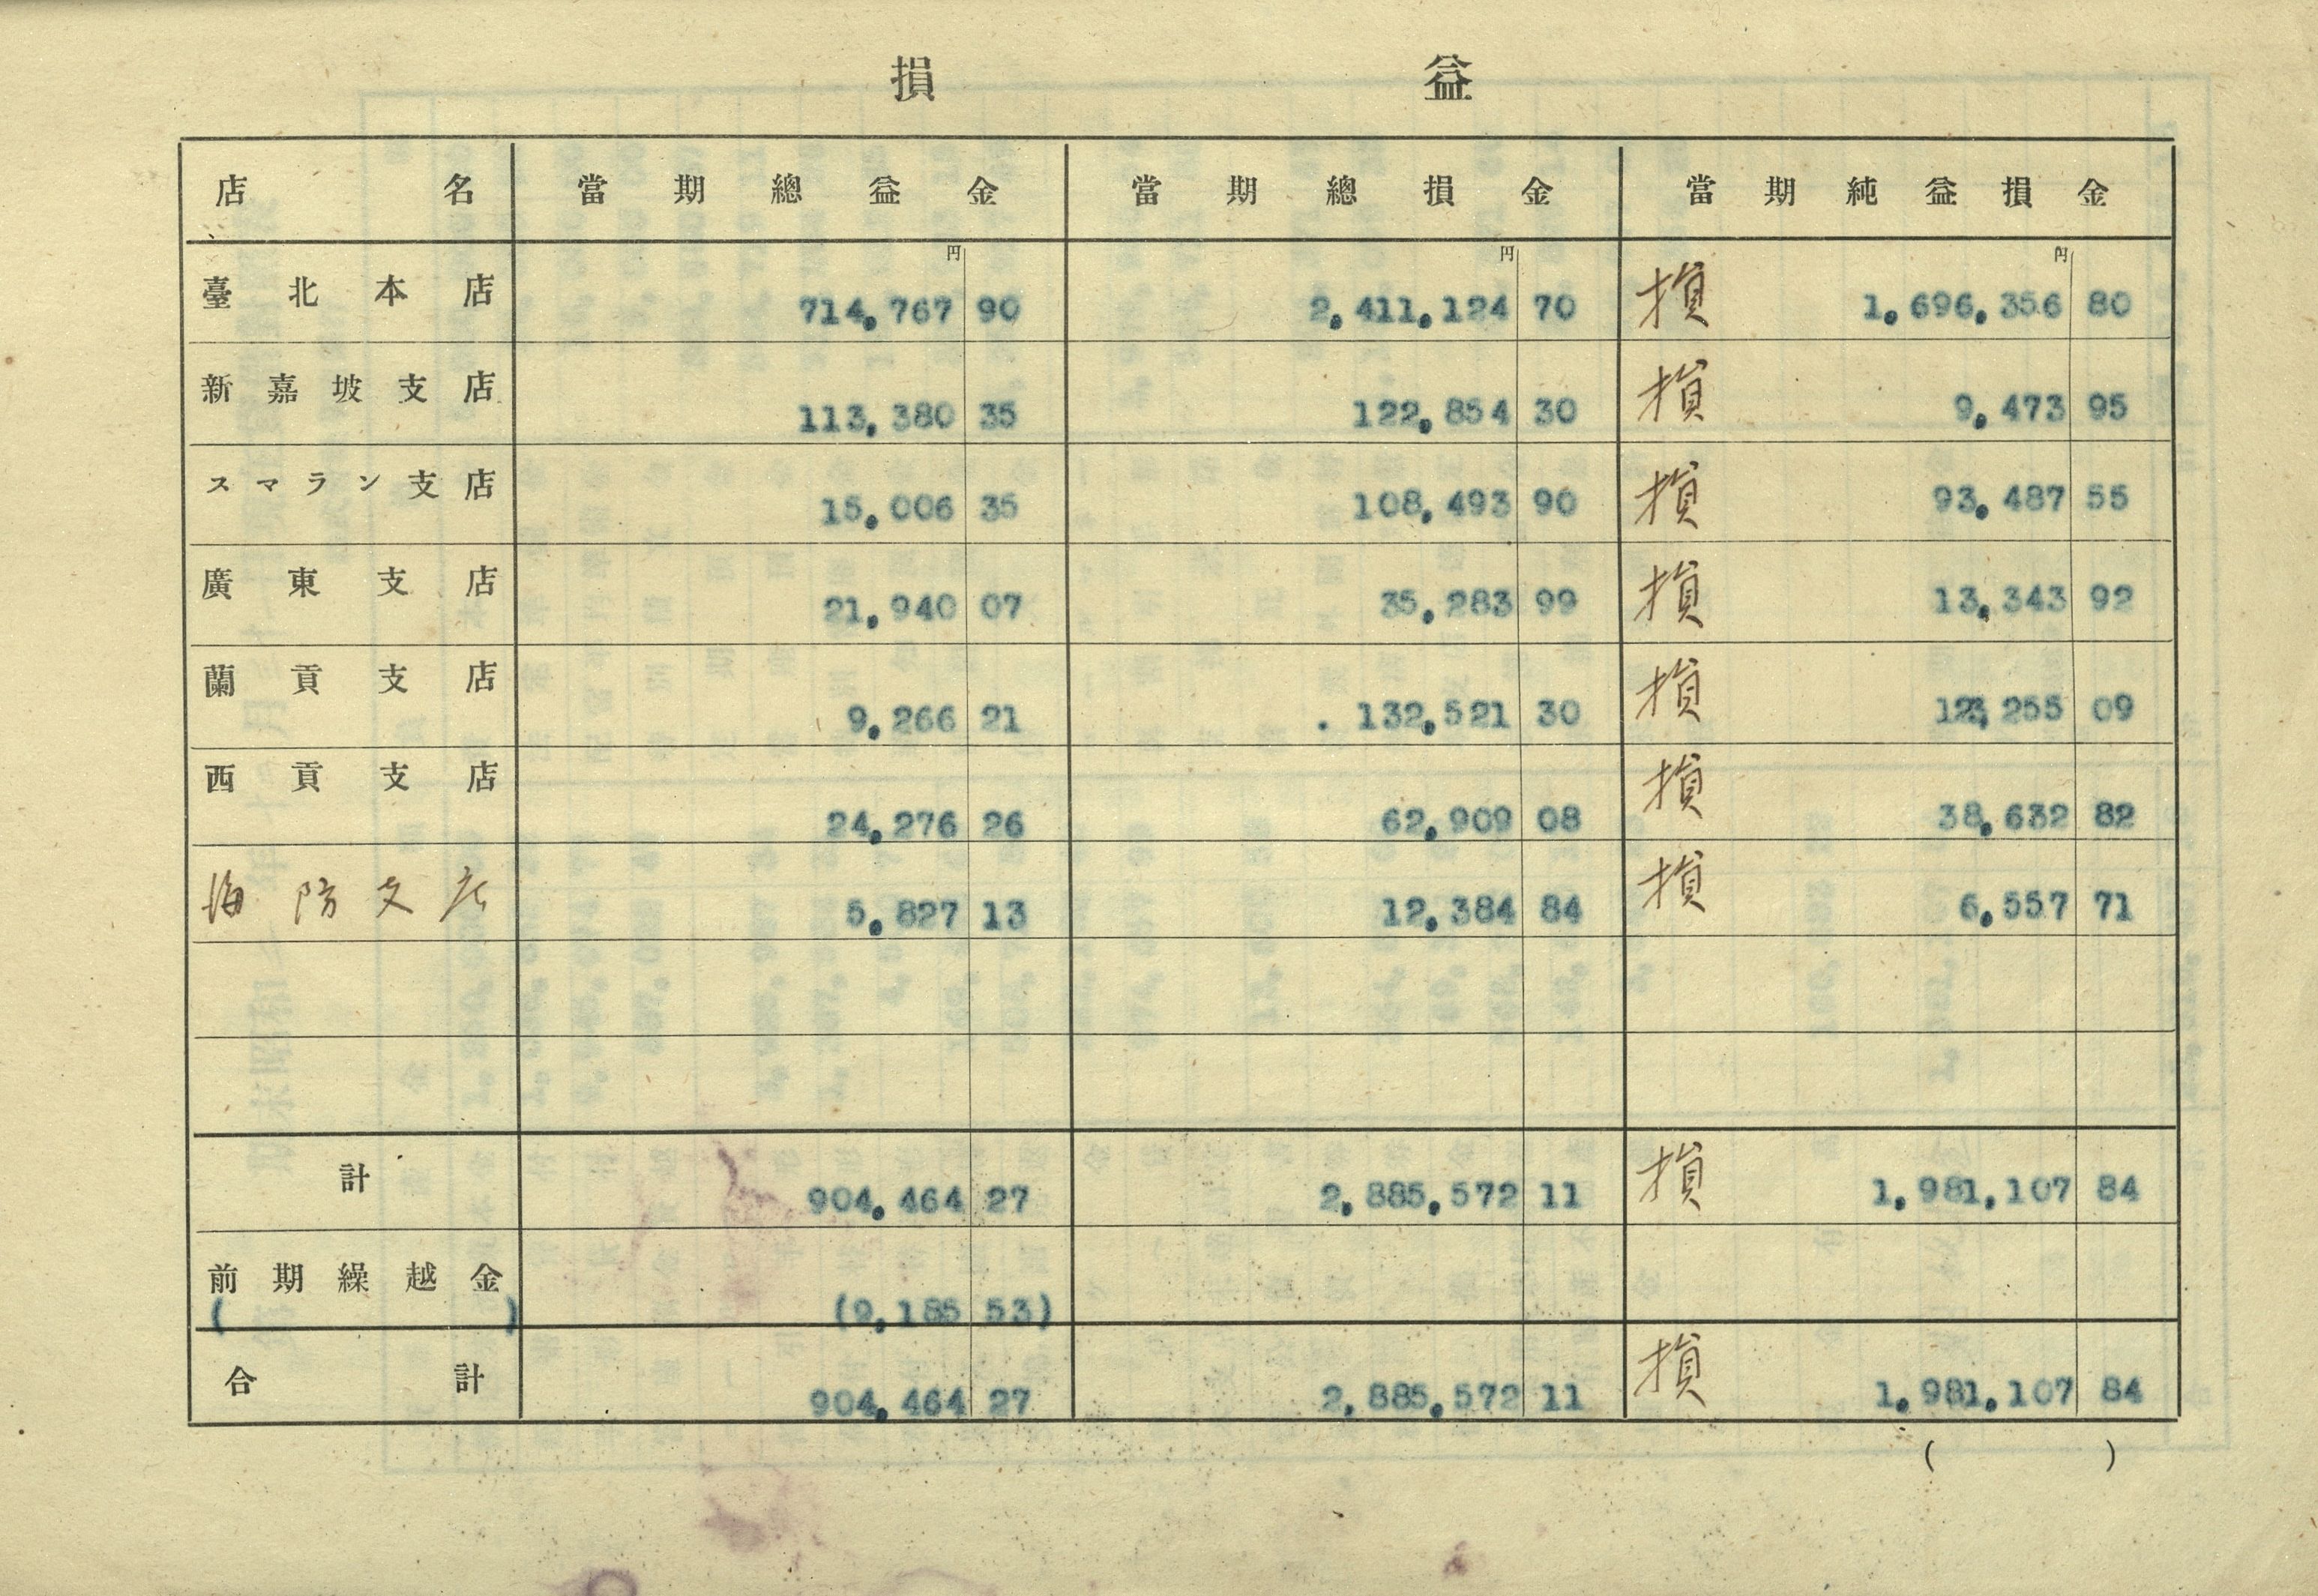 損益
店名 當期總益金 當期總損金 當期純益損金
円 円 円
臺北本店 714,767 90 2,411,124 70 損 1,696,356 80
新嘉坡支店 113,380 35 122,854 30 損 9,473 95
スマラン支店 15,006 35 108,493 90 損 93,487 55
廣東支店 21,940 07 35,283 99 損 13,343 92
蘭貢支店 9,266 21 132,521 30 損 123,255 09
西貢支店 24,276 26 62,909 08 損 38,632 82
海防支店 5,827 13 12,384 84 損 6,557 71
計 904,464 27 2,885,572 11 損 1,981,107 84
(前期繰越金) (9,185 53)
合計 904,464 27 2,885,572 11 損 1,981,107 84
( )